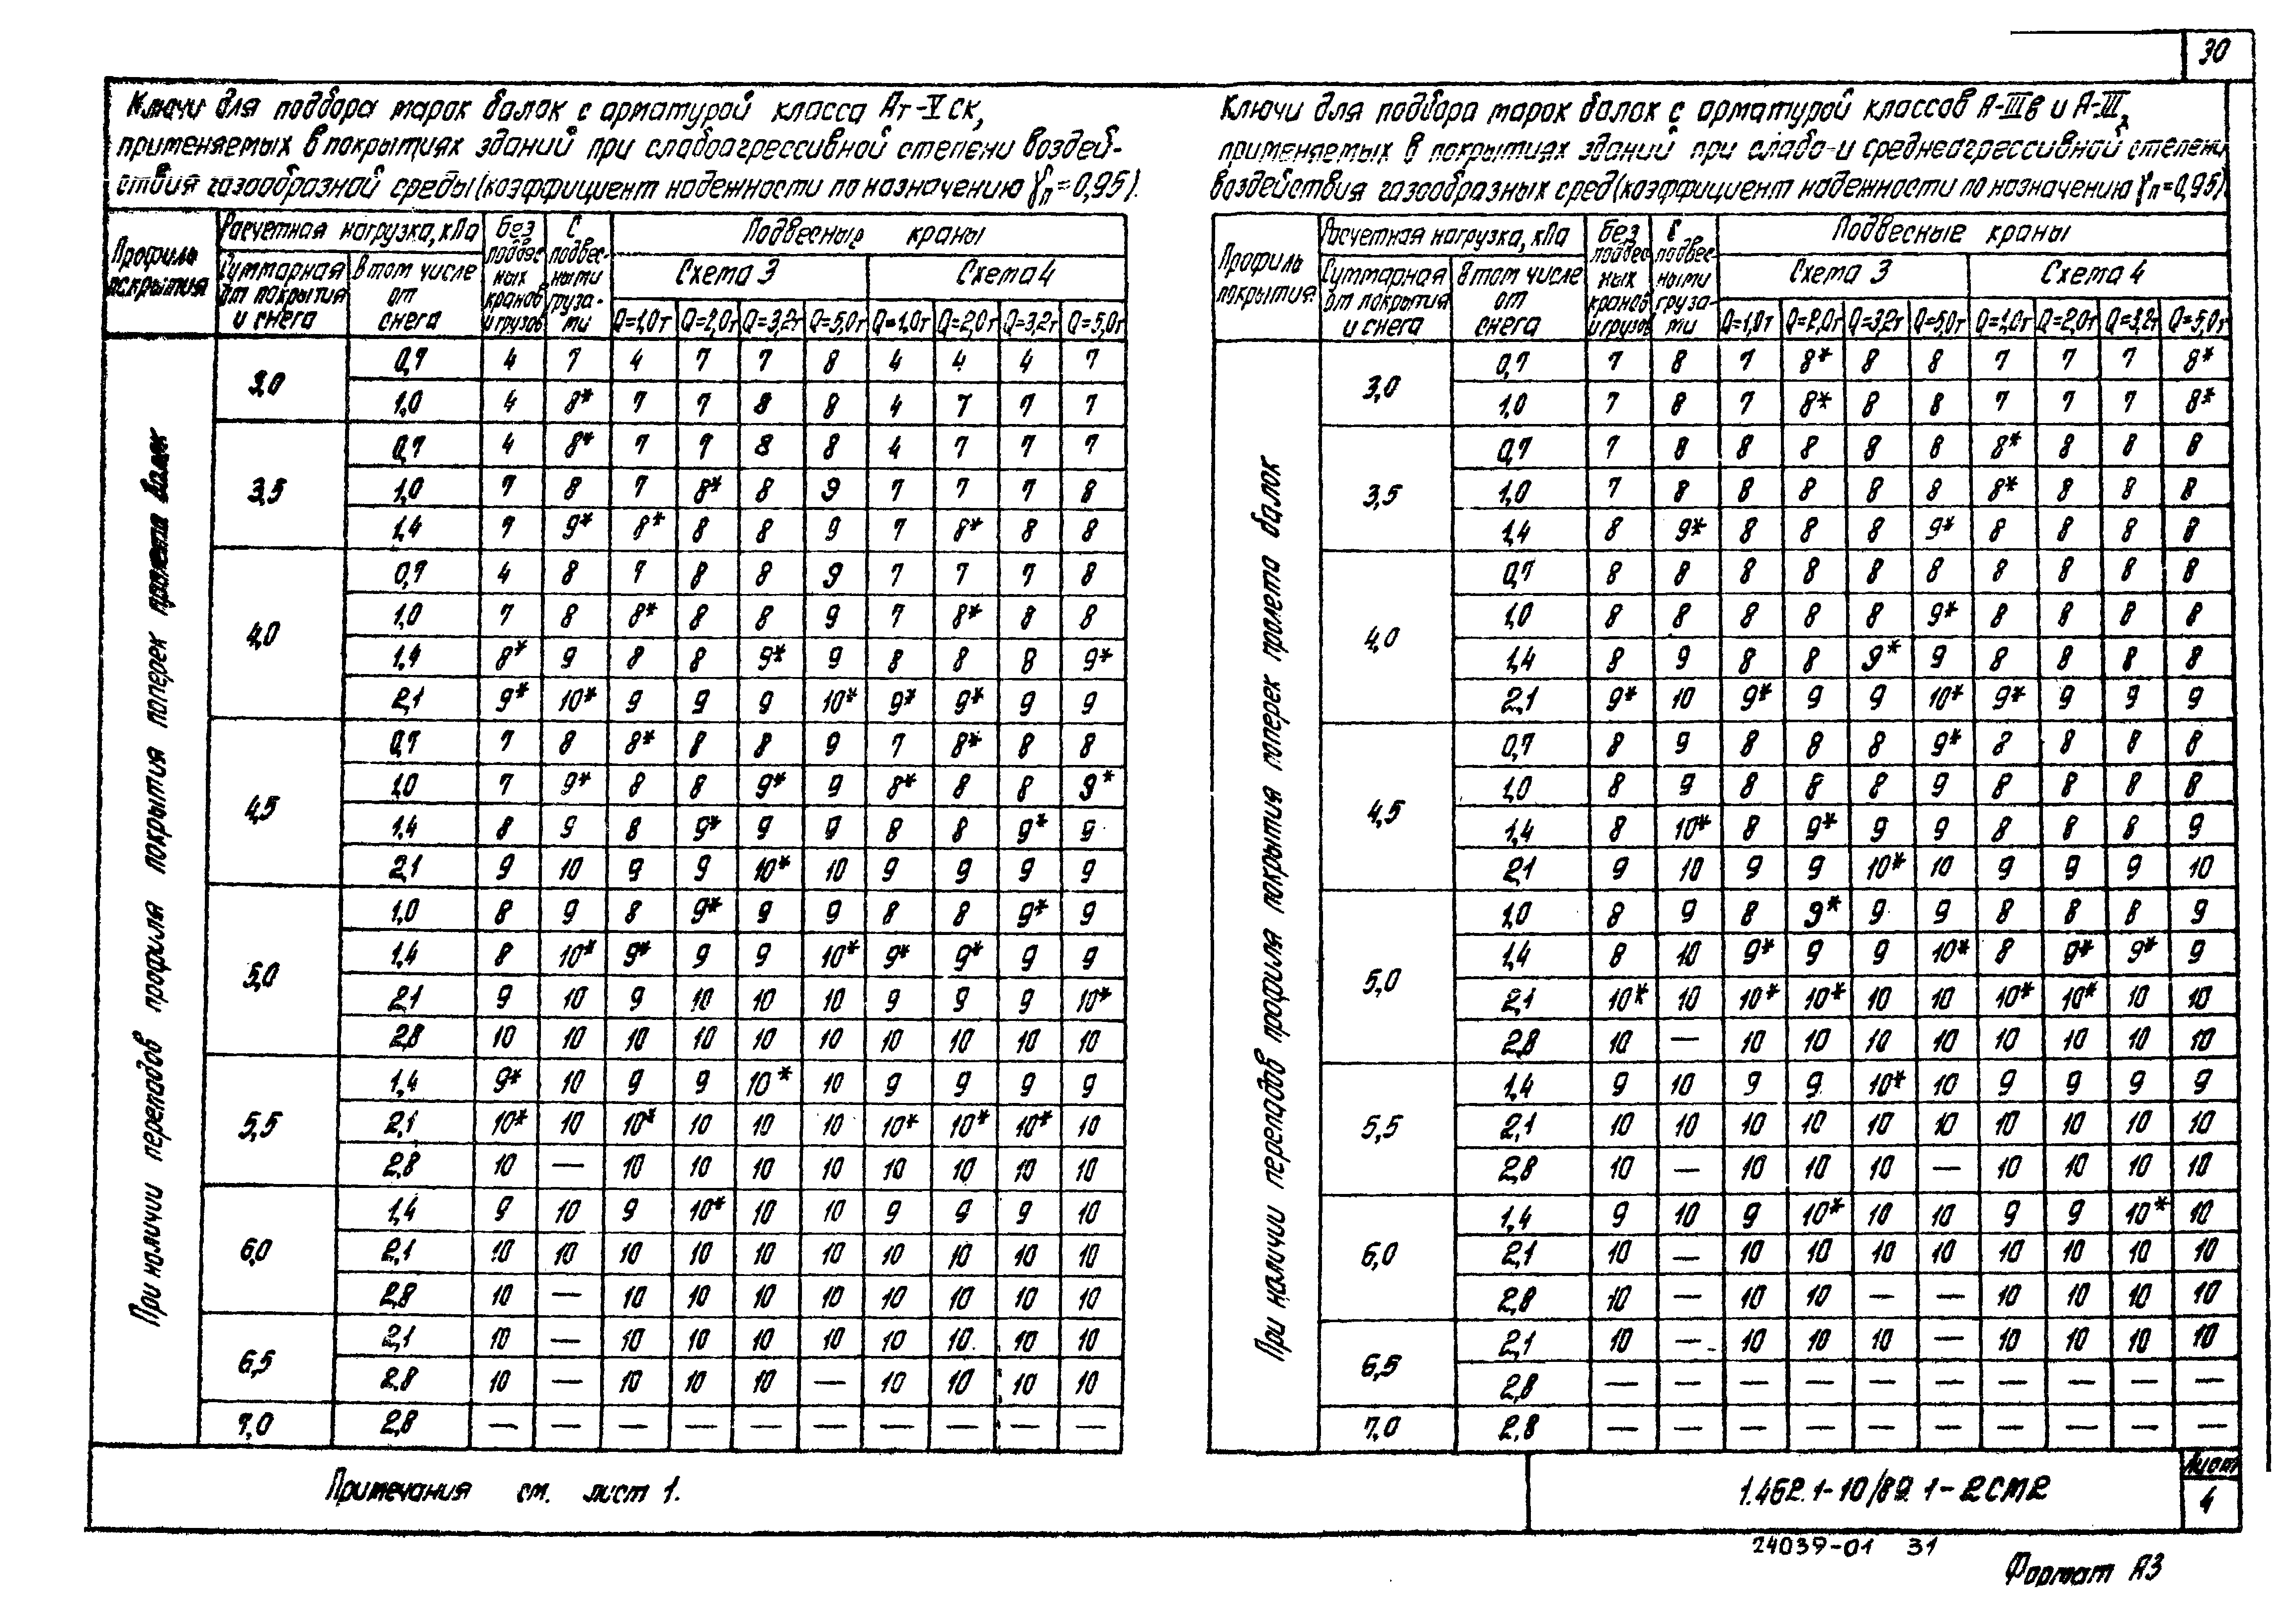 30
Ключи для подбора марок балок с арматурой класса Ат-V ск,
применяемых в покрытиях зданий при слабоагрессивной степени воздей-
ствия газообразной среды (коэффициент надежности по назначению γп=0,95).
Профиль покрытия | Расчетная нагрузка, кПа | Без подвес ных кранов и грузов | С подвес- ными груза- ми | Подвесные краны
Суммарная от покрытия и снега | В том числе от снега | Схема 3 | Схема 4
Q=1,0т Q=2,0т Q=3,2т Q=5,0т Q=1,0т Q=2,0т Q=3,2т Q=5,0т
При наличии перепадов профиля покрытия поперек пролета балок
3,0 0,7 4 7 4 7 7 8 4 4 4 7
1,0 4 8* 7 7 8 8 4 7 7 7
3,5 0,7 4 8* 7 7 8 8 4 7 7 7
1,0 7 8 7 8* 8 9 7 7 7 8
1,4 7 9* 8* 8 8 9 7 8* 8 8
4,0 0,7 4 8 7 8 8 9 7 7 7 8
1,0 7 8 8* 8 8 9 7 8* 8 8
1,4 8* 9 8 8 9* 9 8 8 8 9*
2,1 9* 10* 9 9 9 10* 9* 9* 9 9
4,5 0,7 7 8 8* 8 8 9 7 8* 8 8
1,0 7 9* 8 8 9* 9 8* 8 8 9*
1,4 8 9 8 9* 9 9 8 8 9* 9
2,1 9 10 9 9 10* 10 9 9 9 9
5,0 1,0 8 9 8 9* 9 9 8 8 9* 9
1,4 8 10* 9* 9 9 10* 9* 9* 9 9
2,1 9 10 9 10 10 10 9 9 9 10*
2,8 10 10 10 10 10 10 10 10 10 10
5,5 1,4 9* 10 9 9 10* 10 9 9 9 9
2,1 10* 10 10* 10 10 10 10* 10* 10* 10
2,8 10 — 10 10 10 10 10 10 10 10
6,0 1,4 9 10 9 10* 10 10 9 9 9 10
2,1 10 10 10 10 10 10 10 10 10 10
2,8 10 — 10 10 10 10 10 10 10 10
6,5 2,1 10 — 10 10 10 10 10 10 10 10
2,8 10 — 10 10 10 — 10 10 10 10
7,0 2,8 — — — — — — — — — —
Ключи для подбора марок балок с арматурой классов А-IIIв и А-III,
применяемых в покрытиях зданий при слабо- и среднеагрессивной степени
воздействия газообразных сред (коэффициент надежности по назначению γп=0,95)
Профиль покрытия | Расчетная нагрузка, кПа | Без подвес ных кранов и грузов | С подвес ными груза- ми | Подвесные краны
Суммарная от покрытия и снега | В том числе от снега | Схема 3 | Схема 4
Q=1,0т Q=2,0т Q=3,2т Q=5,0т Q=1,0т Q=2,0т Q=3,2т Q=5,0т
При наличии перепадов профиля покрытия поперек пролета балок
3,0 0,7 7 8 7 8* 8 8 7 7 7 8*
1,0 7 8 7 8* 8 8 7 7 7 8*
3,5 0,7 7 8 8 8 8 8 8* 8 8 8
1,0 7 8 8 8 8 8 8* 8 8 8
1,4 8 9* 8 8 8 9* 8 8 8 8
4,0 0,7 8 8 8 8 8 8 8 8 8 8
1,0 8 8 8 8 8 9* 8 8 8 8
1,4 8 9 8 8 9* 9 8 8 8 8
2,1 9* 10 9* 9 9 10* 9* 9 9 9
4,5 0,7 8 9 8 8 8 9* 8 8 8 8
1,0 8 9 8 8 8 9 8 8 8 8
1,4 8 10* 8 9* 9 9 8 8 8 9
2,1 9 10 9 9 10* 10 9 9 9 10
5,0 1,0 8 9 8 9* 9 9 8 8 8 9
1,4 8 10 9* 9 9 10* 8 9* 9* 9
2,1 10* 10 10* 10* 10 10 10* 10* 10 10
2,8 10 — 10 10 10 10 10 10 10 10
5,5 1,4 9 10 9 9 10* 10 9 9 9 9
2,1 10 10 10 10 10 10 10 10 10 10
2,8 10 — 10 10 10 — 10 10 10 10
6,0 1,4 9 10 9 10* 10 10 9 9 10* 10
2,1 10 — 10 10 10 10 10 10 10 10
2,8 10 — 10 10 — — 10 10 10 10
6,5 2,1 10 — 10 10 10 — 10 10 10 10
2,8 — — — — — — — — — —
7,0 2,8 — — — — — — — — — —
Примечания см. лист 1.
1.462.1-10/89.1-2СМ2
Лист
4
24039-01 31
Формат А3